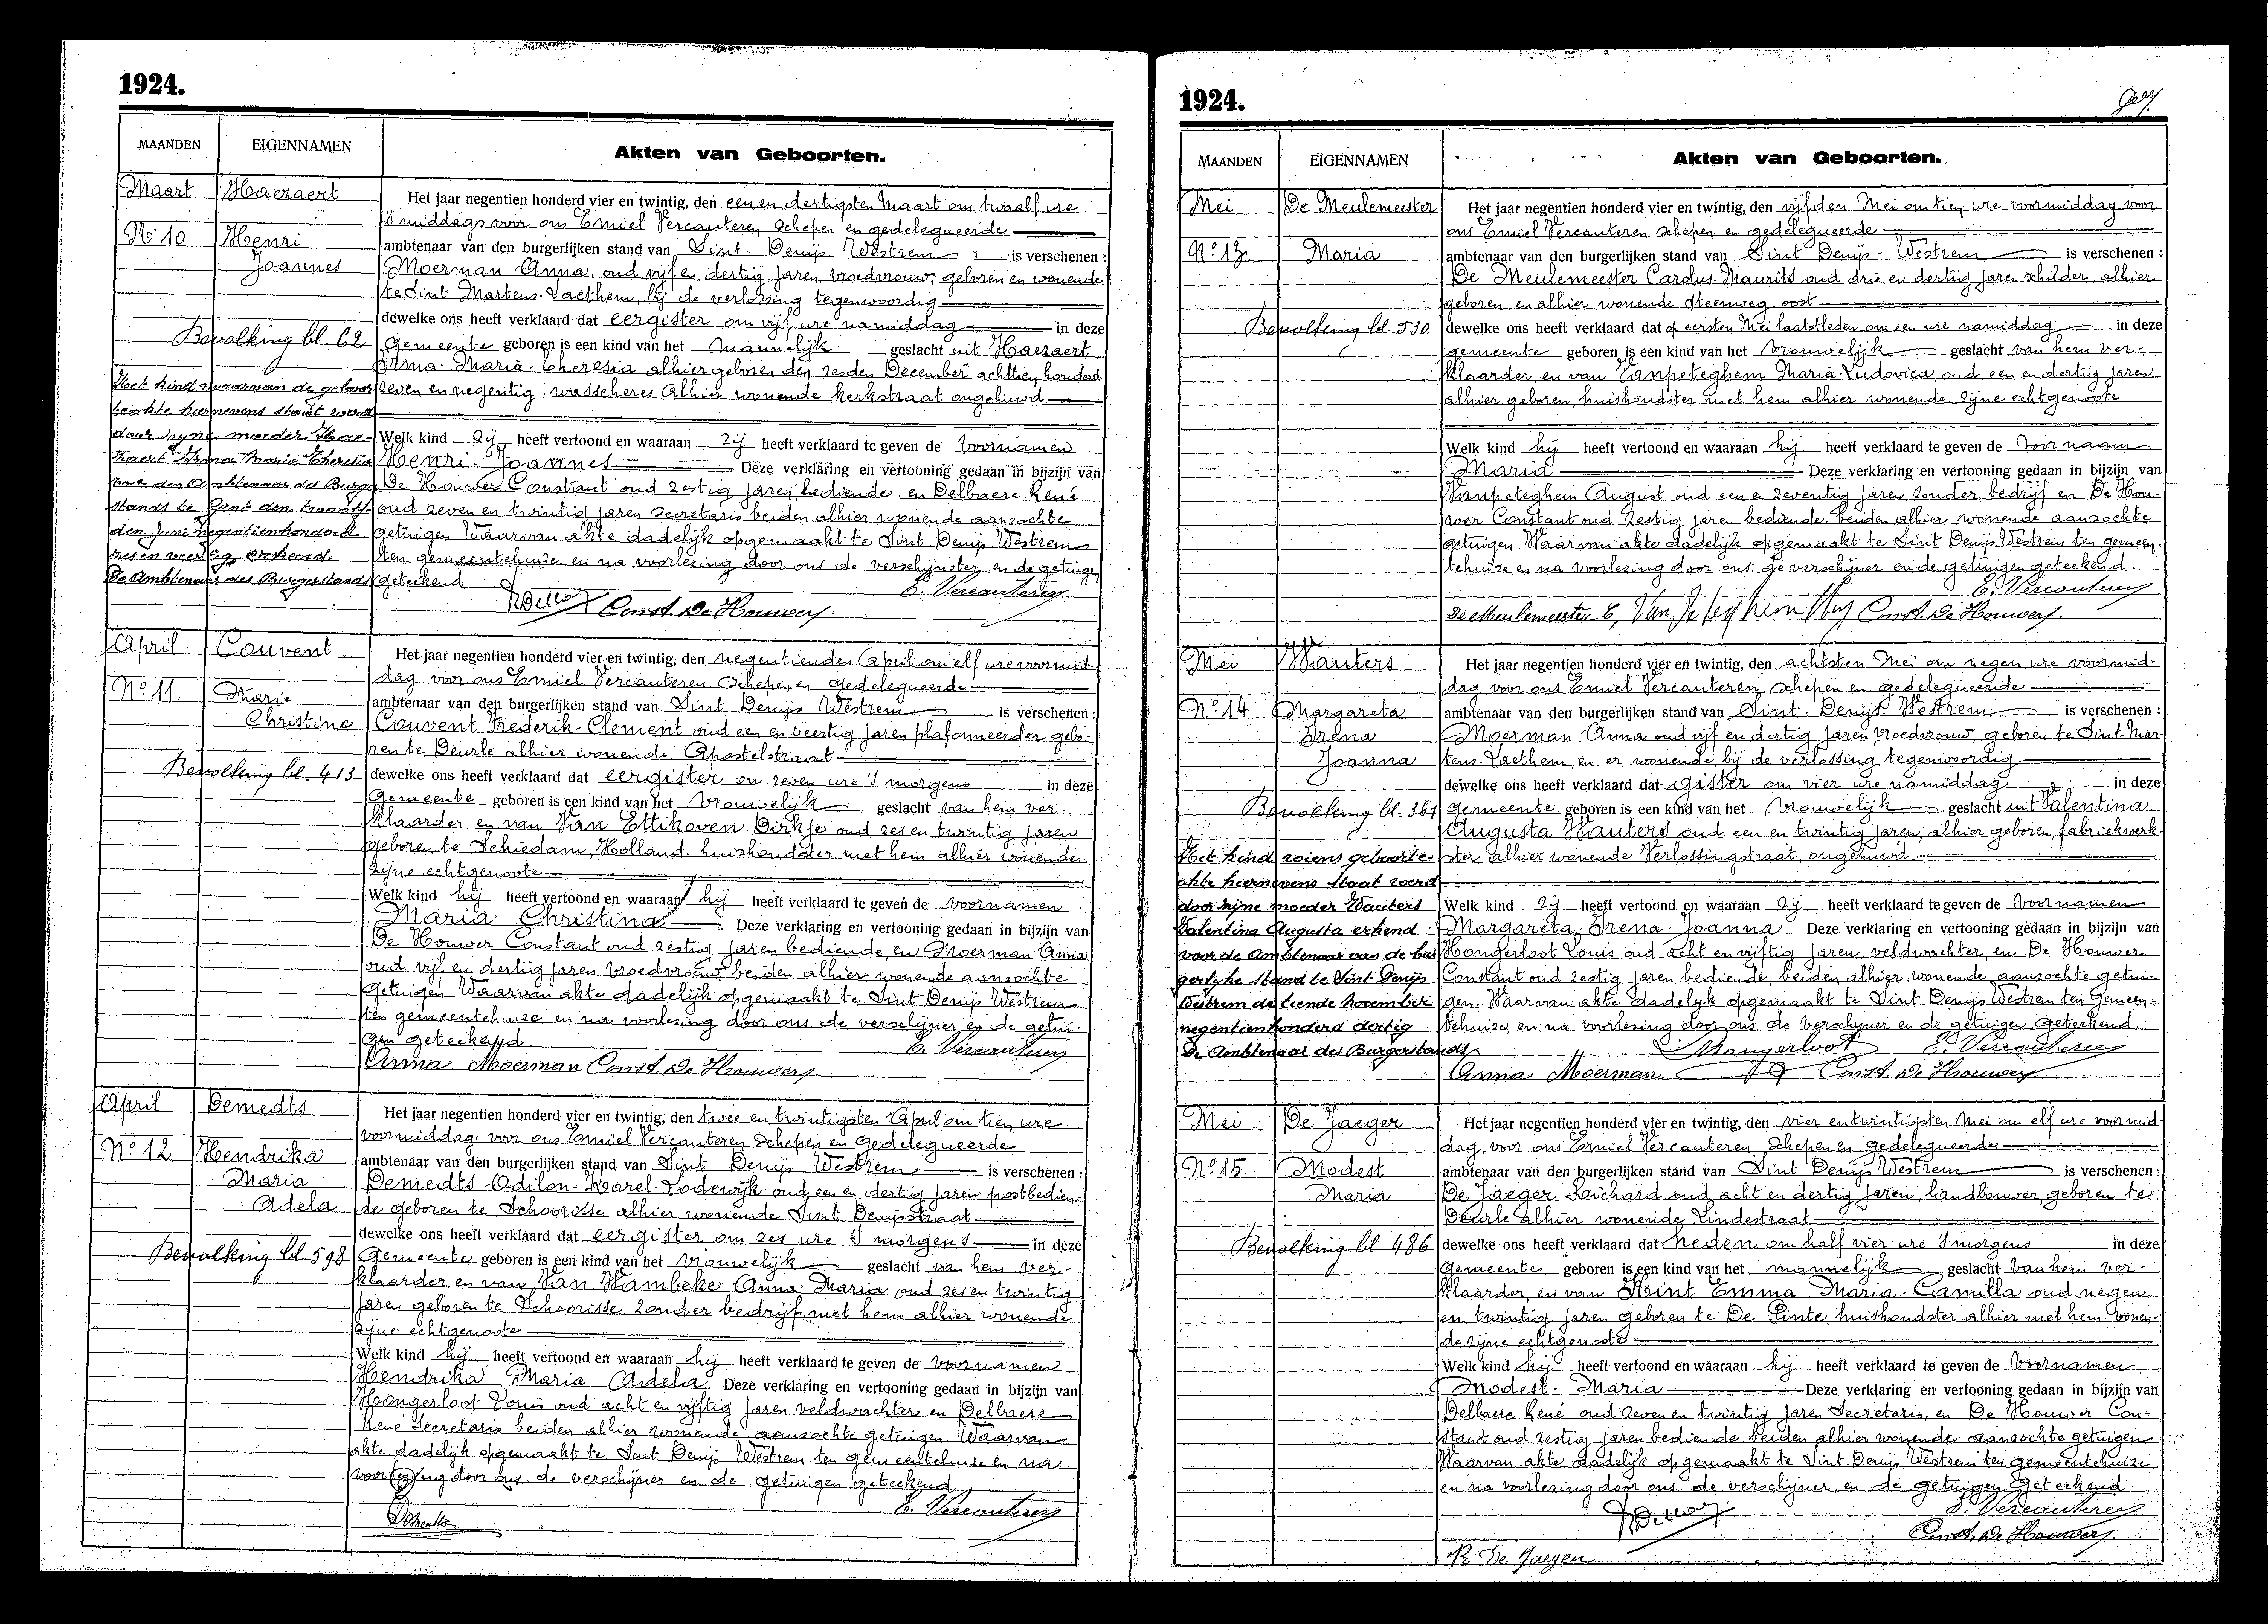 1924.
MAANDEN EIGENNAMEN Akten van Geboorten.
Maart Haezaert
Nº 10 Henri
Joannes
Bevolking bl. 62
Het kind waarvan de geboor-
teakte hiernevens staat werd
door zijne moeder Hae-
zaert Irma Maria Theresia
voor den Ambtenaar des Burger
stands te Gent den twaalf-
den Juni negentienhonderd
zes en veertig erkend.
De Ambtenaar des Burgerstands
Het jaar negentien honderd vier en twintig, den een en dertigsten Maart om twaalf ure
's middags voor ons Emiel Vercauteren schepen en gedelegueerde
ambtenaar van den burgerlijken stand van Sint. Denijs Westrem is verschenen :
Moerman Anna, oud vijf en dertig jaren, vroedvrouw, geboren en wonende
te Sint Martens-Laethem, bij de verlossing tegenwoordig
dewelke ons heeft verklaard dat eergister om vijf ure namiddag in deze
gemeente geboren is een kind van het mannelijk geslacht uit Haezaert
Irma-Maria-Theresia alhier geboren den zesden December achttien honderd
zeven en negentig, wasscheres alhier wonende Kerkstraat ongehuwd
Welk kind zij heeft vertoond en waaraan zij heeft verklaard te geven de voornamen
Henri-Joannes Deze verklaring en vertooning gedaan in bijzijn van
De Houwer Constant oud zestig jaren bediende en Delbaere René
oud zeven en twintig jaren secretaris beiden alhier wonende aanzochte
getuigen Waarvan akte dadelijk opgemaakt te Sint Denijs Westrem
ten gemeentehuize, en na voorlezing door ons de verschijnster en de getuigen
geteekend E. Vercauteren
Const. De Houwer.
April Couvent
Nº 11 Marie
Christine
Bevolking bl. 413
Het jaar negentien honderd vier en twintig, den negentienden April om elf ure voormid-
dag voor ons Emiel Vercauteren schepen en gedelegueerde
ambtenaar van den burgerlijken stand van Sint Denijs Westrem is verschenen :
Couvent Frederik-Clement oud een en veertig jaren plafonneerder gebo-
ren te Deurle alhier wonende Apostelstraat
dewelke ons heeft verklaard dat eergister om zeven ure 's morgens in deze
Gemeente geboren is een kind van het vrouwelijk geslacht van hem ver-
klaarder en van Van Ettikoven Dirkje oud zes en twintig jaren
geboren te Schiedam, Holland. huishoudster met hem alhier wonende
zijne echtgenoote
Welk kind hij heeft vertoond en waaraan hij heeft verklaard te geven de voornamen
Maria-Christina. Deze verklaring en vertooning gedaan in bijzijn van
De Houwer Constant oud zestig jaren bediende, en Moerman Anna
oud vijf en dertig jaren vroedvrouw beiden alhier wonende aanzochte
getuigen Waarvan akte dadelijk opgemaakt te Sint Denijs Westrem
ten gemeentehuize, en na voorlezing door ons de verschijner en de getui-
gen geteekend E. Vercauteren
Anna Moerman Const. De Houwer.
April Demedts
Nº 12 Hendrika
Maria
Adela
Bevolking bl. 598
Het jaar negentien honderd vier en twintig, den twee en twintigsten April om tien ure
voormiddag voor ons Emiel Vercauteren Schepen en Gedelegueerde
ambtenaar van den burgerlijken stand van Sint Denijs Westrem is verschenen :
Demedts-Odilon-Karel-Lodewijk oud een en dertig jaren postbedien-
de geboren te Schoorisse alhier wonende Sint Denijsstraat
dewelke ons heeft verklaard dat eergister om zes ure 's morgens in deze
Gemeente geboren is een kind van het vrouwelijk geslacht van hem ver-
klaarder en van Van Wambeke Anna-Maria oud zes en twintig
jaren geboren te Schoorisse zonder bedrijf met hem alhier wonende
zijne echtgenoote
Welk kind hij heeft vertoond en waaraan hij heeft verklaard te geven de voornamen
Hendrika Maria Adela. Deze verklaring en vertooning gedaan in bijzijn van
Hongerloot Louis oud acht en vijftig jaren veldwachter en Delbaere
René Secretaris beiden alhier wonende aanzochte getuigen Waarvan
akte dadelijk opgemaakt te Sint Denijs Westrem ten gemeentehuize en na
voorlezing door ons de verschijner en de getuigen geteekend
E. Vercauteren
Demedts
1924.
MAANDEN EIGENNAMEN Akten van Geboorten.
Mei De Meulemeester
Nº 13 Maria
Bevolking bl. 530
Het jaar negentien honderd vier en twintig, den vijfden Mei om tien ure voormiddag voor
ons Emiel Vercauteren schepen en gedelegueerde
ambtenaar van den burgerlijken stand van Sint Denijs-Westrem is verschenen :
De Meulemeester Carolus-Maurits oud drie en dertig jaren schilder, alhier
geboren, en alhier wonende Steenweg oost
dewelke ons heeft verklaard dat op eersten Mei laatstleden om een ure namiddag in deze
gemeente geboren is een kind van het vrouwelijk geslacht van hem ver-
klaarder, en van Vanpeteghem Maria-Ludovica, oud een en dertig jaren
alhier geboren, huishoudster met hem alhier wonende zijne echtgenoote
Welk kind hij heeft vertoond en waaraan hij heeft verklaard te geven de voornaam
Maria Deze verklaring en vertooning gedaan in bijzijn van
Vanpeteghem August oud een en zeventig jaren, zonder bedrijf en De Hou-
wer Constant oud zestig jaren bediende, beiden alhier wonende aanzochte
getuigen Waarvan akte dadelijk opgemaakt te Sint Denijs Westrem ten gemeen-
tehuize en na voorlezing door ons de verschijner en de getuigen geteekend.
E. Vercauteren
De Meulemeester C, Van Peteghem Aug Const. De Houwer.
Mei Wauters
Nº 14 Margareta
Irena
Joanna
Bevolking bl. 361
Het kind wiens geboorte-
akte hiernevens staat werd
door zijne moeder Wauters
Valentina Augusta erkend
voor de Ambtenaar van de bur
gerlyke stand te Sint Denijs
Westrem de tiende November
negentienhonderd dertig
De Ambtenaar des Burgerstands
Het jaar negentien honderd vier en twintig, den achtsten Mei om negen ure voormid-
dag voor ons Emiel Vercauteren schepen en gedelegueerde
ambtenaar van den burgerlijken stand van Sint-Denijs Westrem is verschenen :
Moerman Anna oud vijf en dertig jaren, vroedvrouw, geboren te Sint-Mar-
tens-Laethem, en er wonende, bij de verlossing tegenwoordig
dewelke ons heeft verklaard dat gister om vier ure namiddag in deze
gemeente geboren is een kind van het vrouwelijk geslacht uit Valentina
Augusta Wauters oud een en twintig jaren, alhier geboren, fabriekwerk-
ster alhier wonende Verlossingstraat, ongehuwd.
Welk kind zij heeft vertoond en waaraan zij heeft verklaard te geven de voornamen
Margareta-Irena-Joanna Deze verklaring en vertooning gedaan in bijzijn van
Hongerloot Louis oud acht en vijftig jaren, veldwachter, en De Houwer
Constant oud zestig jaren bediende, beiden alhier wonende aanzochte getui-
gen. Waarvan akte dadelijk opgemaakt te Sint Denijs Westrem ten Gemeen-
tehuize, en na voorlezing door ons de verschijner en de getuigen geteekend.
Hongerloot E. Vercauteren
Anna Moerman. Const. De Houwer
Mei De Jaeger
Nº 15 Modest
Maria
Bevolking bl. 486
Het jaar negentien honderd vier en twintig, den vier en twintigsten Mei om elf ure voormid-
dag voor ons Emiel Vercauteren, Schepen en gedelegueerde
ambtenaar van den burgerlijken stand van Sint Denijs Westrem is verschenen :
De Jaeger Richard oud acht en dertig jaren, landbouwer, geboren te
Deurle alhier wonende Lindestraat
dewelke ons heeft verklaard dat heden om half vier ure 's morgens in deze
Gemeente geboren is een kind van het mannelijk geslacht van hem ver-
klaarder, en van Hint Emma Maria-Camilla oud negen
en twintig jaren geboren te De Pinte, huishoudster alhier met hem wonen-
de zijne echtgenoote
Welk kind hij heeft vertoond en waaraan hij heeft verklaard te geven de voornamen
Modest-Maria Deze verklaring en vertooning gedaan in bijzijn van
Delbaere René oud zeven en twintig jaren Secretaris, en De Houwer Con-
stant oud zestig jaren bediende beiden alhier wonende aanzochte getuigen
Waarvan akte dadelijk opgemaakt te Sint Denijs Westrem ten gemeentehuize
en na voorlezing door ons de verschijner, en de getuigen geteekend
E. Vercauteren
Const. De Houwer.
R De Jaeger